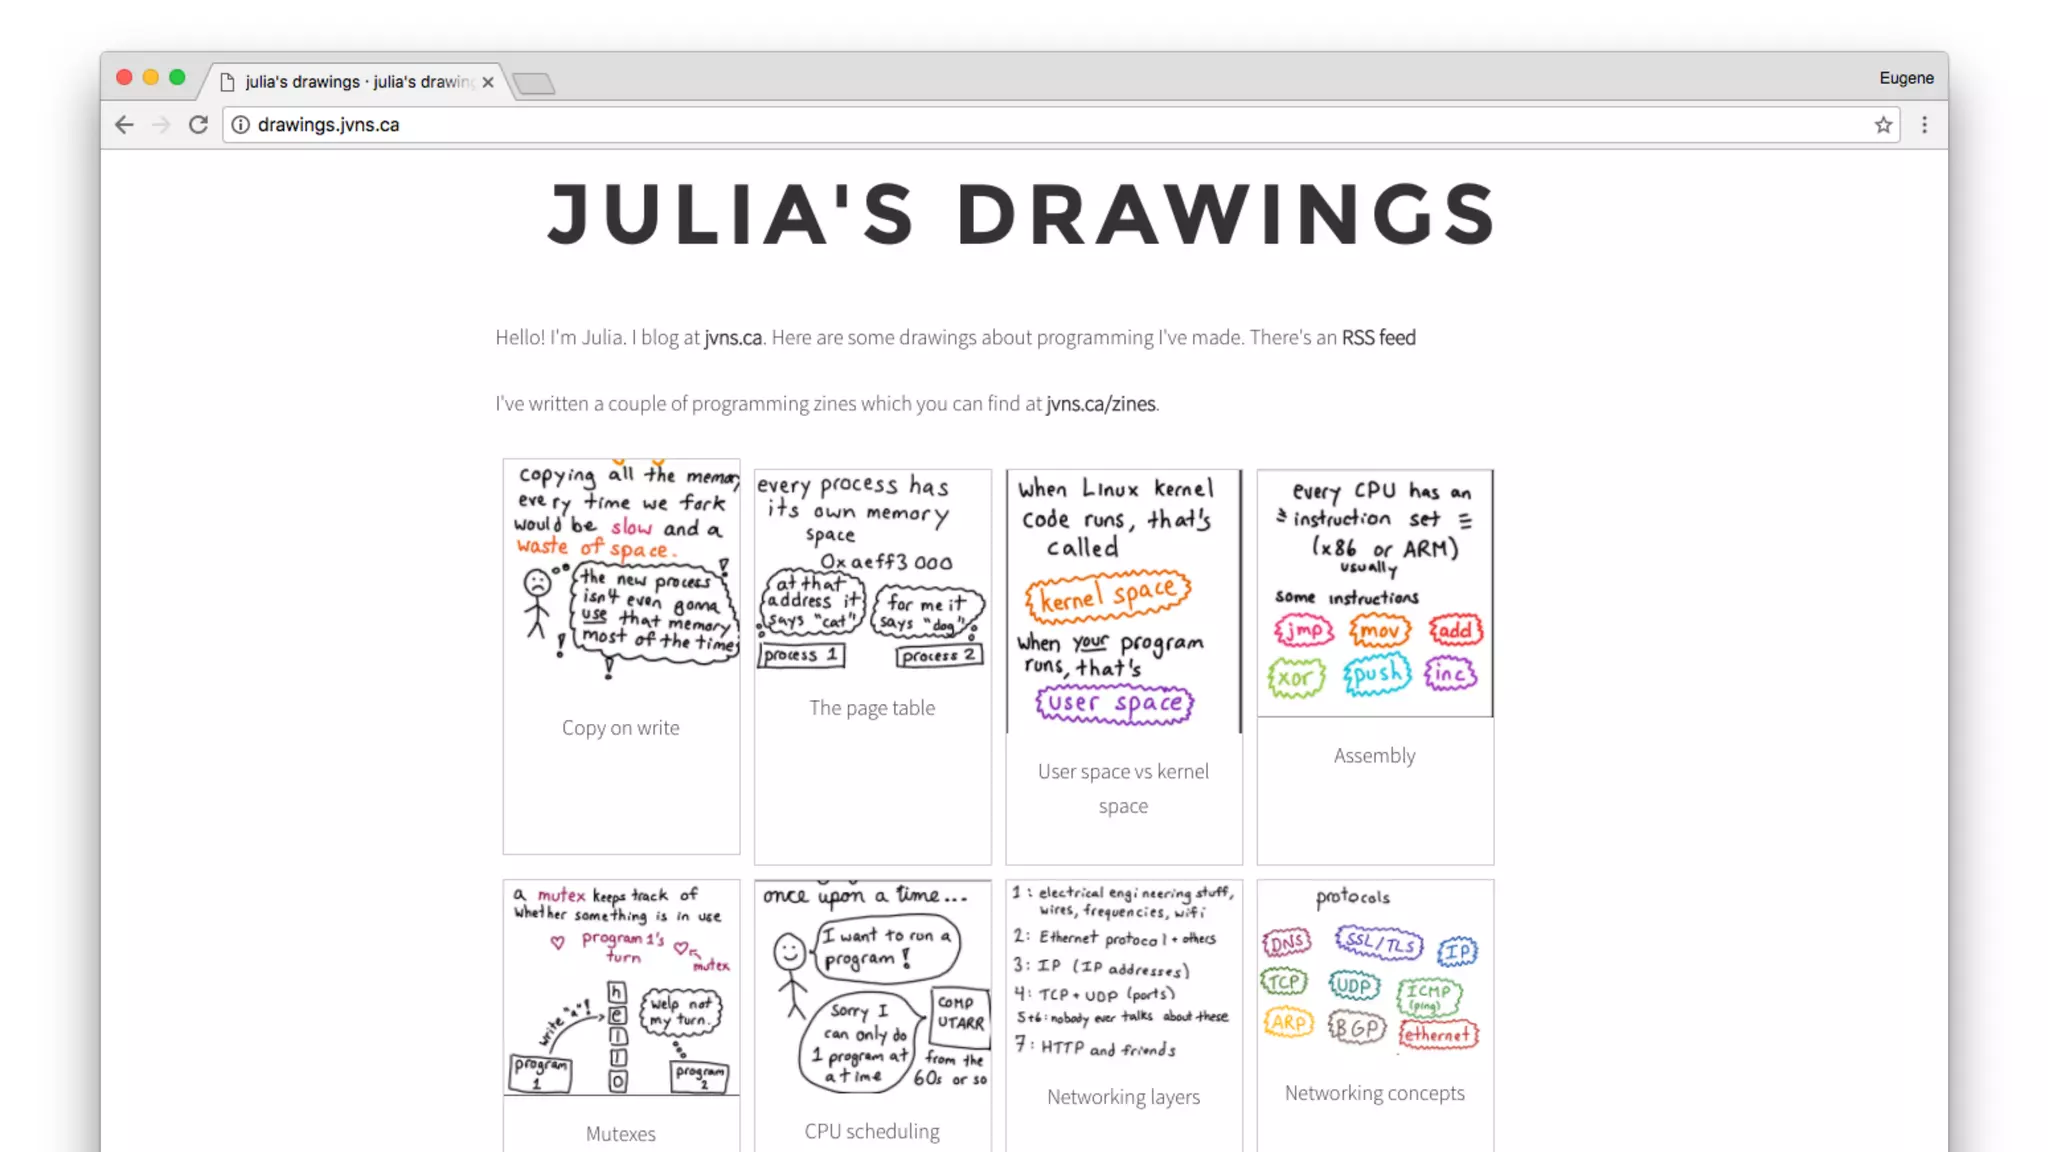 julia's drawings · julia's drawing
Eugene
drawings.jvns.ca
JULIA'S DRAWINGS
Hello! I'm Julia. I blog at jvns.ca. Here are some drawings about programming I've made. There's an RSS feed
I've written a couple of programming zines which you can find at jvns.ca/zines.
copying all the memory
every time we fork
would be slow and a
waste of space.
the new process
isn't even gonna
use that memory
most of the time
Copy on write
every process has
its own memory
space
0xaeff3000
at that
address it
says "cat"
for me it
says "dog"
process 1
process 2
The page table
when Linux kernel
code runs, that's
called
kernel space
when your program
runs, that's
user space
User space vs kernel
space
every CPU has an
instruction set
(x86 or ARM)
usually
some instructions
jmp mov add
xor push inc
Assembly
a mutex keeps track of
whether something is in use
program 1's
turn
mutex
write "a"!
h
e
l
l
o
welp not
my turn.
program
1
program
2
Mutexes
once upon a time...
I want to run a
program!
Sorry I
can only do
1 program at
a time
COMP
UTARR
from the
60s or so
CPU scheduling
1: electrical engineering stuff,
wires, frequencies, wifi
2: Ethernet protocol + others
3: IP (IP addresses)
4: TCP + UDP (ports)
5+6: nobody ever talks about these
7: HTTP and friends
Networking layers
protocols
DNS SSL/TLS IP
TCP UDP ICMP
(ping)
ARP BGP ethernet
Networking concepts